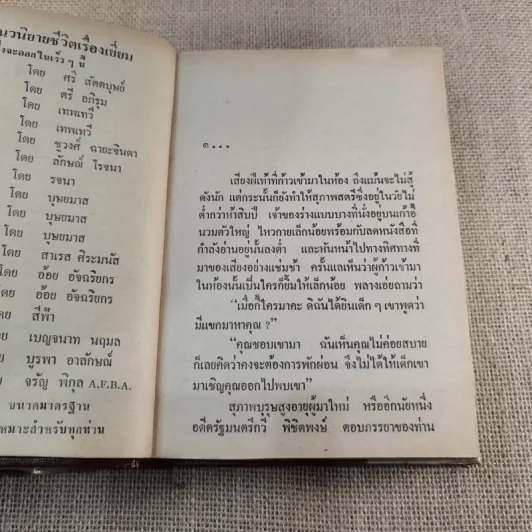 นวนิยายชีวิตเรื่องเยี่ยม
จะออกในเร็ว ๆ นี้
โดย ศรี สัตตบุษย์
โดย ตรี อภิรุม
โดย เทพเทวี
โดย เทพเทวี
โดย ชูวงศ์ ฉายะจินดา
โดย ลักษณ์ โรจนา
โดย รจนา
โดย บุษยมาส
โดย บุษยมาส
โดย บุษยมาส
โดย สาเรส ศิระมนัส
โดย อ้อย อัจฉริยกร
โดย อ้อย อัจฉริยกร
โดย สีฟ้า
โดย เบญจนาท นฤมล
โดย บูรพา อาลักษณ์
โดย จรัญ พิกุล A.F.B.A.
ขนาดมาตรฐาน
เหมาะสำหรับทุกท่าน
๑...
เสียงฝีเท้าที่ก้าวเข้ามาในห้อง ถึงแม้นจะไม่สู้
ดังนัก แต่กระนั้นก็ยังทำให้สุภาพสตรีซึ่งอยู่ในวัยไม่
ต่ำกว่าห้าสิบปี เจ้าของร่างแบบบางที่นั่งอยู่บนเก้าอี้
นวมตัวใหญ่ ไหวกายเล็กน้อยพร้อมกับลดหนังสือที่
กำลังอ่านอยู่นั้นลงต่ำ และหันหน้าไปทางทิศทางที่
มาของเสียงอย่างแช่มช้า ครั้นแลเห็นว่าผู้ก้าวเข้ามา
ในห้องนั้นเป็นใครก็ยิ้มให้เล็กน้อย พลางเอ่ยถามว่า
“เมื่อกี้ใครมาคะ ดิฉันได้ยินเด็ก ๆ เขาพูดว่า
มีแขกมาหาคุณ ?”
“คุณชอบเขามา ฉันเห็นคุณไม่ค่อยสบาย
ก็เลยคิดว่าคงจะต้องการพักผ่อน จึงไม่ได้ให้เด็กเขา
มาเชิญคุณออกไปพบเขา”
สุภาพบุรุษสูงอายุผู้มาใหม่ หรืออีกนัยหนึ่ง
อดีตรัฐมนตรีกวี พิชิตพงษ์ ตอบภรรยาของท่าน